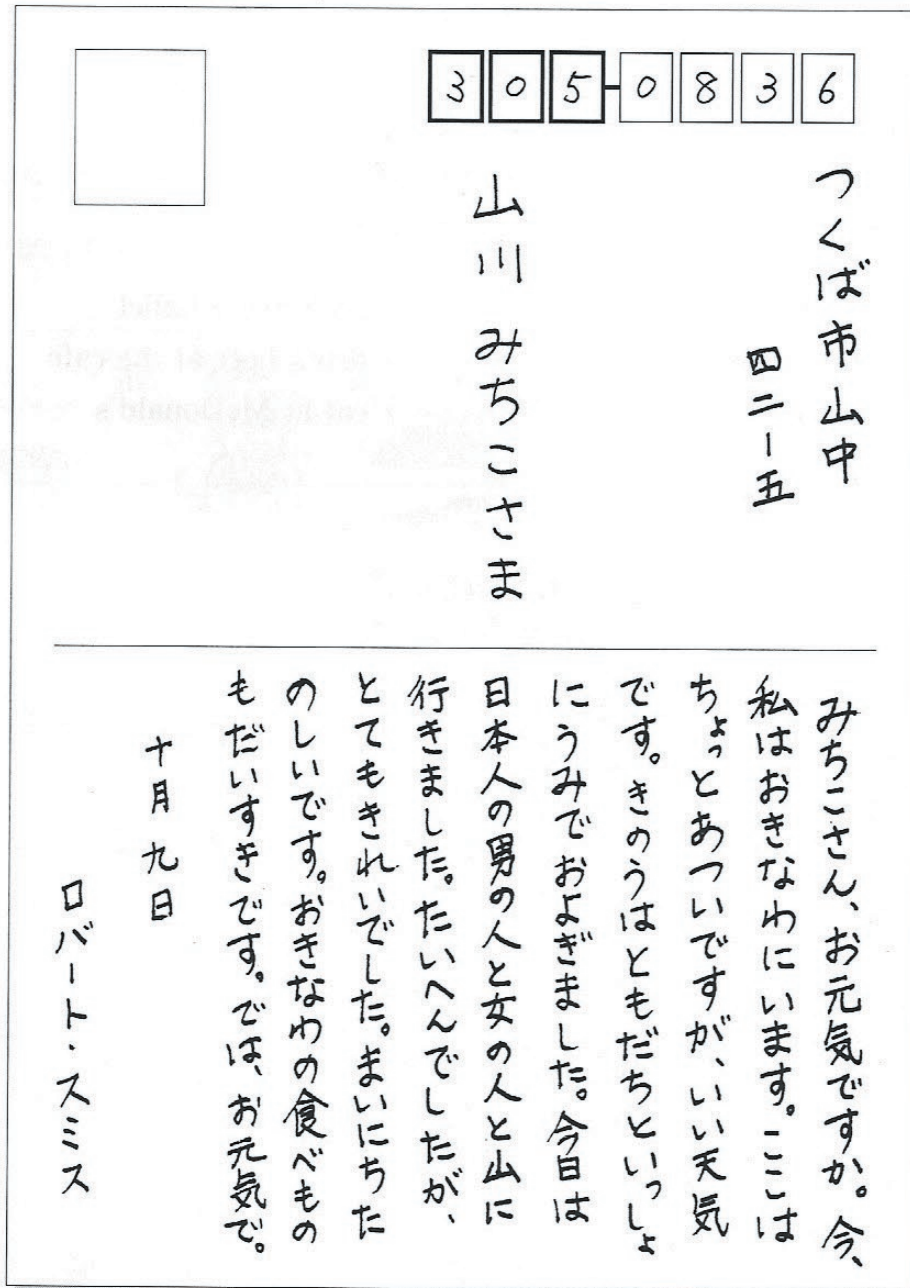 305-0836
つくば市山中
四二ー五
山川 みちこさま
みちこさん、お元気ですか。今、
私はおきなわにいます。ここは
ちょっとあついですが、いい天気
です。きのうはともだちといっしょ
にうみでおよぎました。今日は
日本人の男の人と女の人と山に
行きました。たいへんでしたが、
とてもきれいでした。まいにちた
のしいです。おきなわの食べもの
もだいすきです。では、お元気で。
十月九日
ロバート・スミス